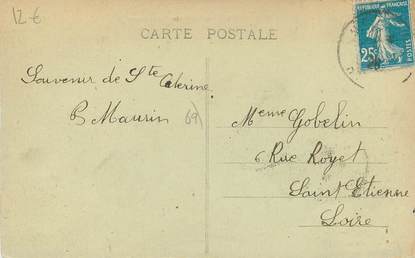 12 €
CARTE POSTALE
REPUBLIQUE FRANÇAISE
25c
POSTES
Souvenir de Ste Caterine
B Maurin
69
Meme Gobelin
6 Rue Royet
Saint Etienne
Loire